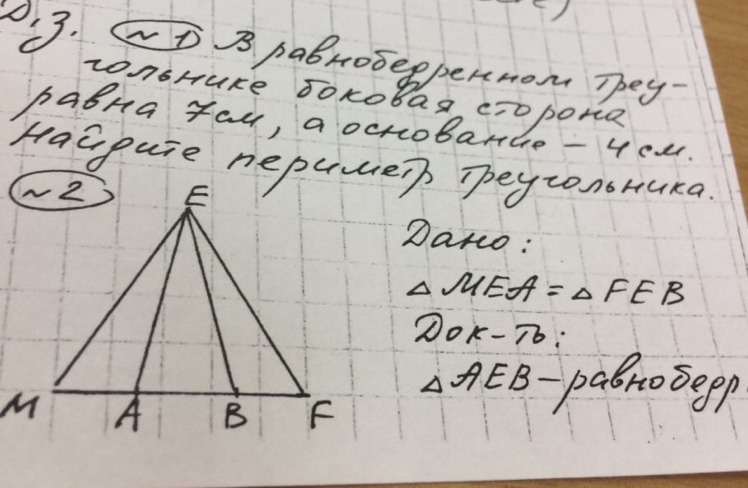 Д.з. №1 В равнобедренном треу-
гольнике боковая сторона
равна 7см, а основание - 4 см.
Найдите периметр треугольника.
№2
E
M A B F
Дано:
△MEA = △FEB
Док-ть:
△AEB - равнобедр